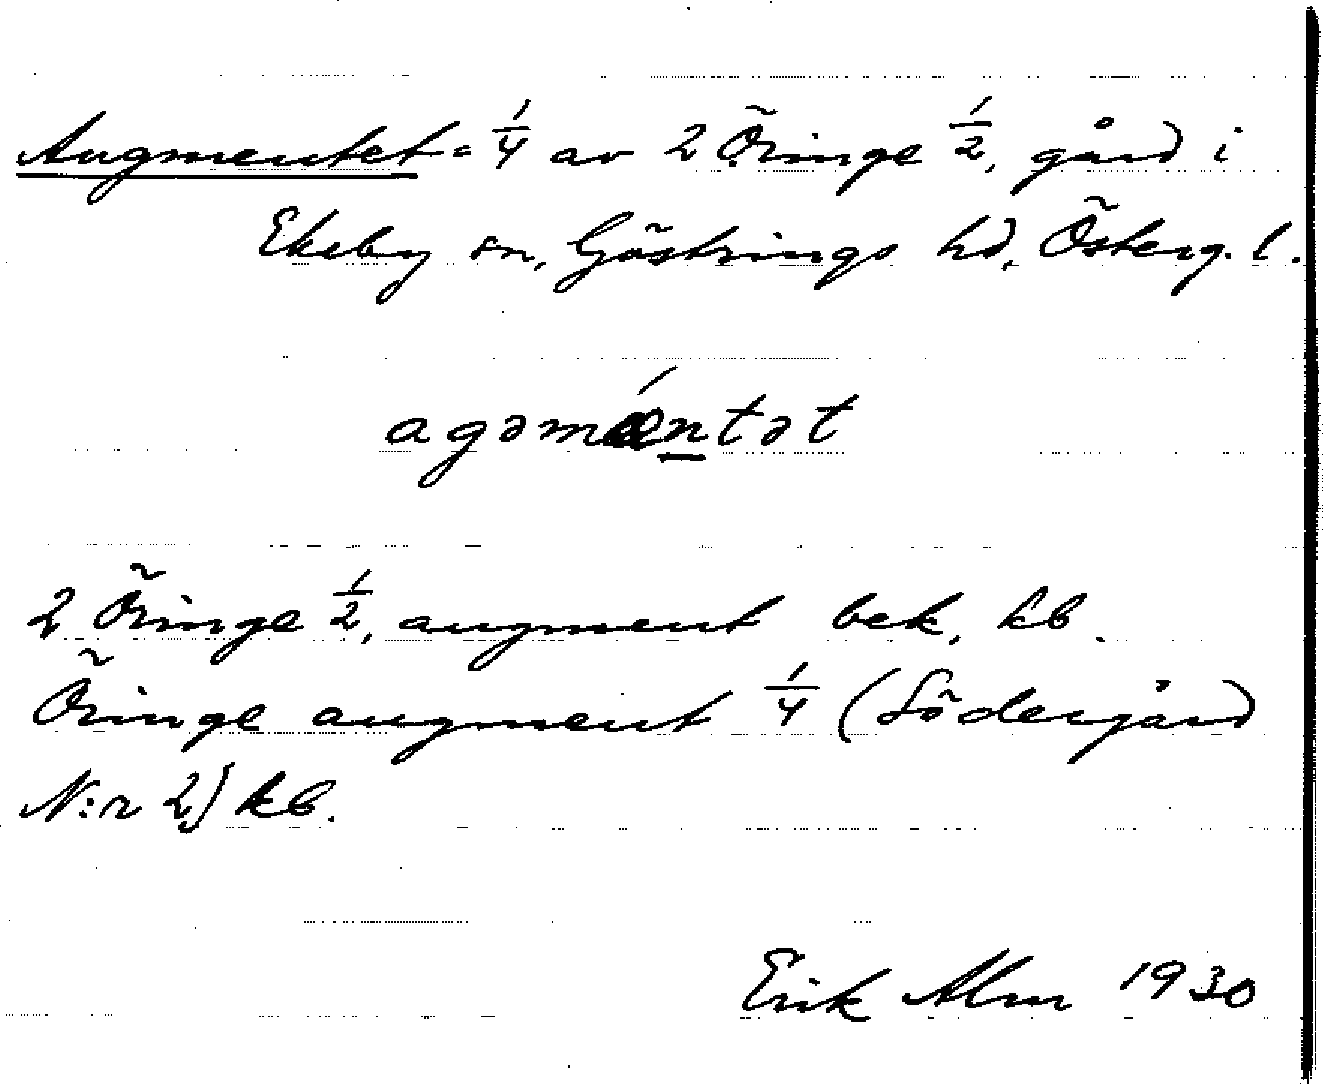 Augmentet = 1/4 av 2 Öringe 1/2, gård i
Ekeby sn, Göstrings hd, Österg. l.
agəmǽntət
2 Öringe 1/2, augment bek, kb.
Öringe augment 1/4 (Södergård
N:r 2) kb.
Erik Alm 1930